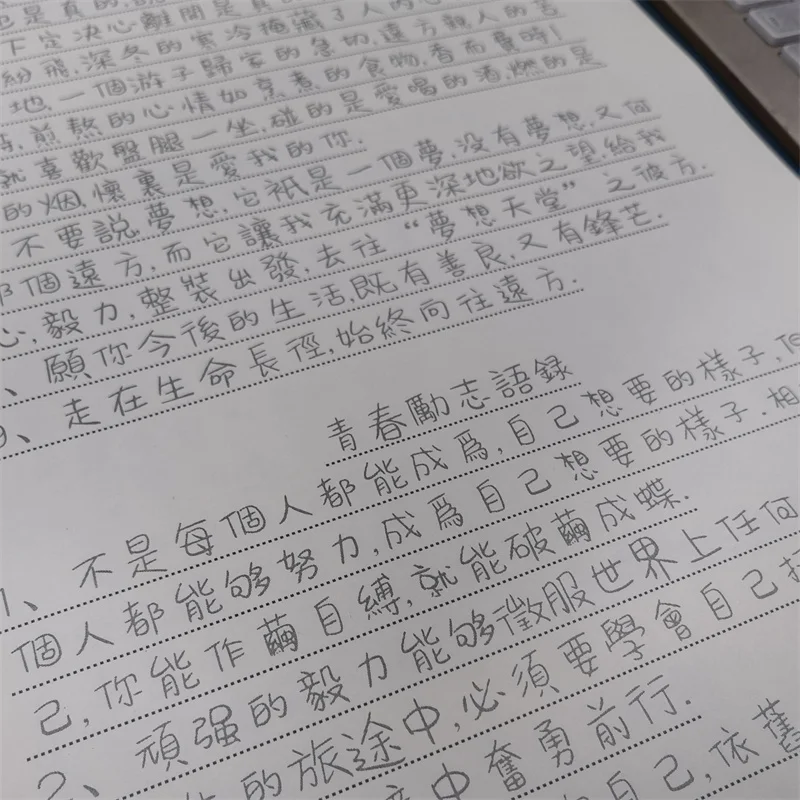 也是真的,
下定決心離開是真
紛飛,深冬的寒冷掩藏了人內心
地,一個游子歸家的急切,遠方親人的苦
,煎熬的心情如烹煮的食物,香而費時!
就喜歡盤腿一坐,碰的是愛唱的酒,燃的是
的烟,懷裏是愛我的你.
不要說夢想,它衹是一個夢,没有夢想,又何
那個遠方,而它讓我充滿更深地欲之望,給我
心,毅力,整裝出發,去往“夢想天堂”之彼方.
、願你今後的生活,既有善良,又有鋒芒.
9、走在生命長徑,始終向往遠方.
青春勵志語録
1、不是每個人都能成爲,自己想要的樣子,但
個人都能够努力,成爲自己想要的樣子.相
己,你能作繭自縛,就能破繭成蝶.
2、頑强的毅力能够徵服世界上任何
的旅途中,必須要學會自己打
中奮勇前行.
自己,依舊